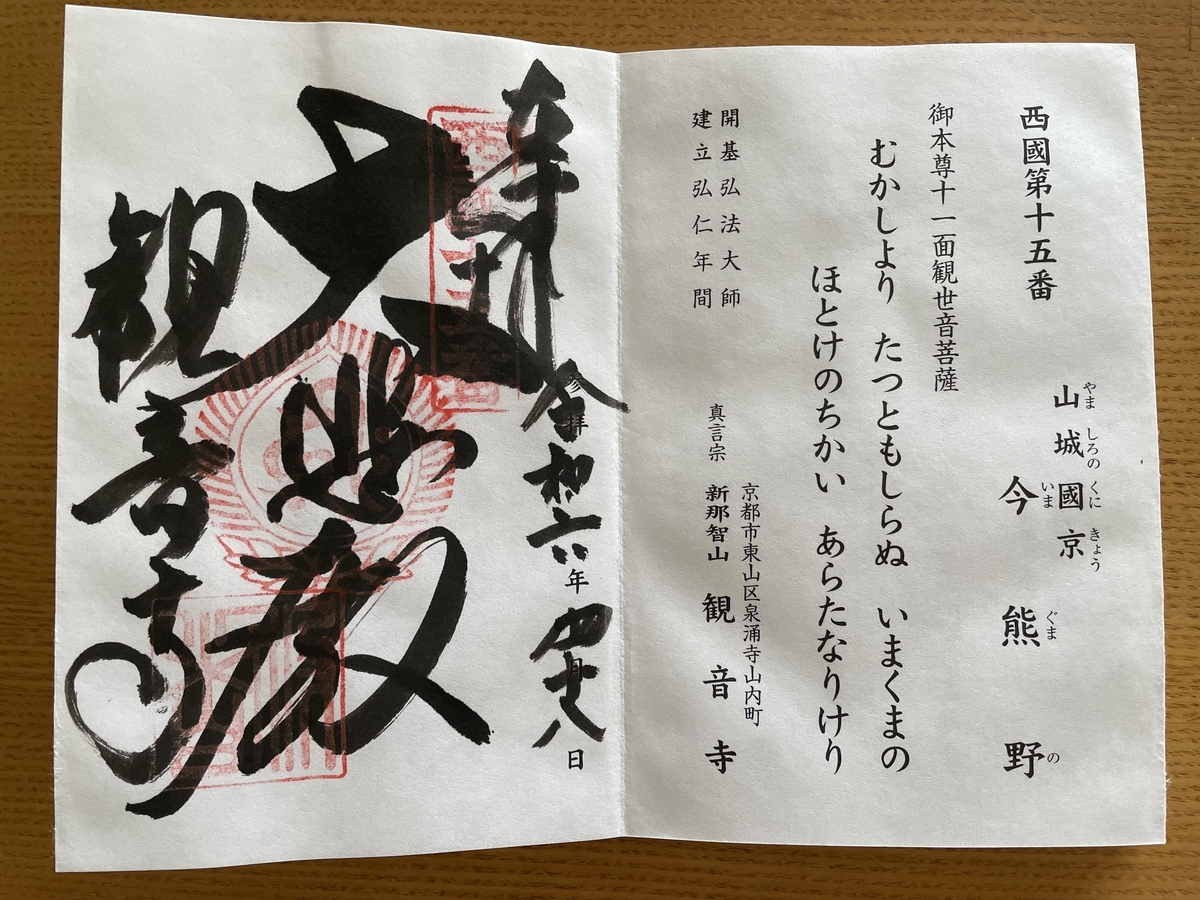 西國第十五番
やま しろの くに きょう
山城國京
いま ぐま の
今熊野
御本尊十一面観世音菩薩
むかしより たつともしらぬ いまくまの
ほとけのちかい あらたなりけり
開基弘法大師
建立弘仁年間
京都市東山区泉涌寺山内町
真言宗 新那智山 観音寺
奉拝
参拝
令和六年四月十八日
大悲殿
観音寺